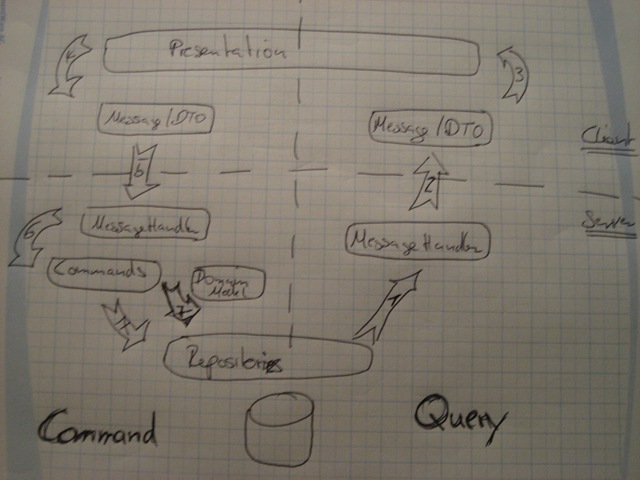 Presentation
4
3
Message/DTO
Message/DTO
Client
5
2
Server
6
MessageHandler
MessageHandler
Commands
Domain
Model
7
1
Repositories
Command
Query